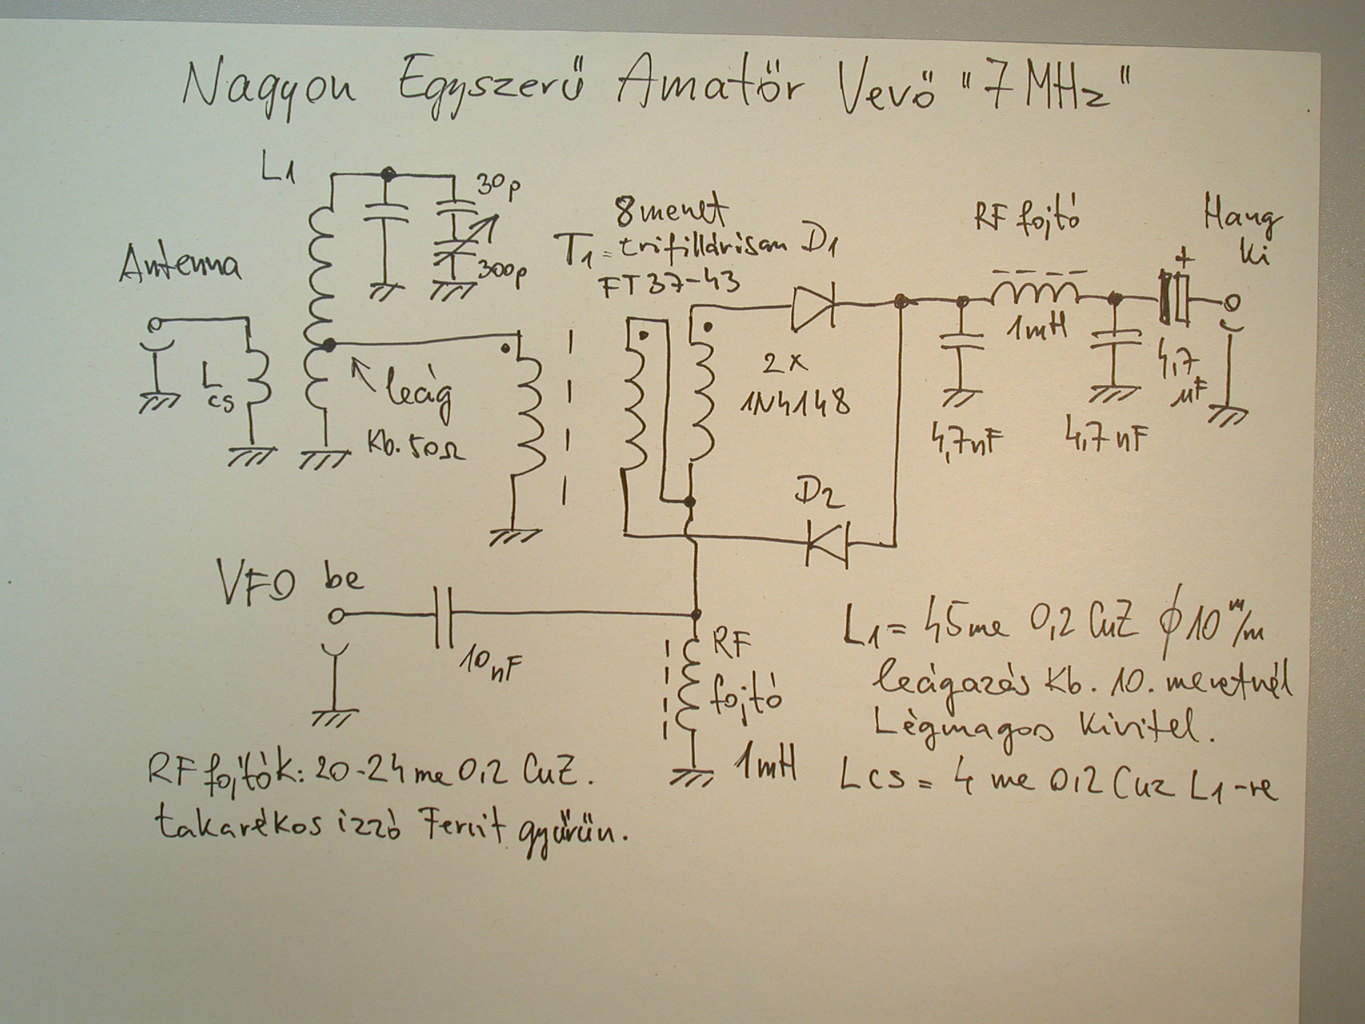 Nagyon Egyszerű Amatőr Vevő "7 MHz"
L1
30p
300p
Antenna
Lcs
leág
Kb. 50Ω
8 menet
T1 = trifillárisan
FT 37-43
D1
2x
1N4148
D2
RF fojtó
1mH
4,7nF
4,7nF
Hang
ki
+
4,7
µF
VFO be
10nF
RF
fojtó
1mH
L1 = 45me 0,2 CuZ ϕ10 m/m
leágazás Kb. 10. menetnél
Légmagos Kivitel.
Lcs = 4 me 0,2 Cuz L1-re
RF fojtók: 20-24 me 0,2 CuZ.
takarékos izzó Ferrit gyűrűn.